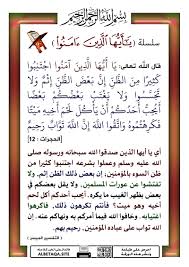 بسم الله الرحمن الرحيم
سلسلة ( يَا أَيُّهَا الَّذِينَ ءَامَنُوا )
قال الله تعالى: يَا أَيُّهَا الَّذِينَ آمَنُوا اجْتَنِبُوا
كَثِيرًا مِنَ الظَّنِّ إِنَّ بَعْضَ الظَّنِّ إِثْمٌ وَلَا
تَجَسَّسُوا وَلَا يَغْتَبْ بَعْضُكُمْ بَعْضًا
أَيُحِبُّ أَحَدُكُمْ أَنْ يَأْكُلَ لَحْمَ أَخِيهِ مَيْتًا
فَكَرِهْتُمُوهُ وَاتَّقُوا اللَّهَ إِنَّ اللَّهَ تَوَّابٌ رَحِيمٌ
[الحجرات : 12]
أي يا أيها الذين صدقوا الله سبحانه ورسوله صلى
الله عليه وسلم وعملوا بشرعه اجتنبوا كثيرا من
ظن السوء بالمؤمنين، إن بعض ذلك الظن إثم، ولا
تفتشوا عن عورات المسلمين، ولا يقل بعضكم في
بعض بظهر الغيب ما يكره. أيحب أحدكم أكل لحم
أخيه وهو ميت؟ فأنتم تكرهون ذلك، فاكرهوا
اغتيابه. وخافوا الله فيما أمركم به ونهاكم عنه. إن
الله تواب على عباده المؤمنين، رحيم بهم.
( التفسير الميسر )
ALBETAQA.SITE